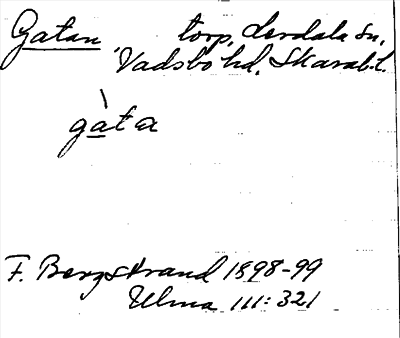 Gatan torp, Lerdala sn,
Vadsbo hd, Skarab. l.
gàta
F. Bergstrand 1898-99
Ulma 111:321